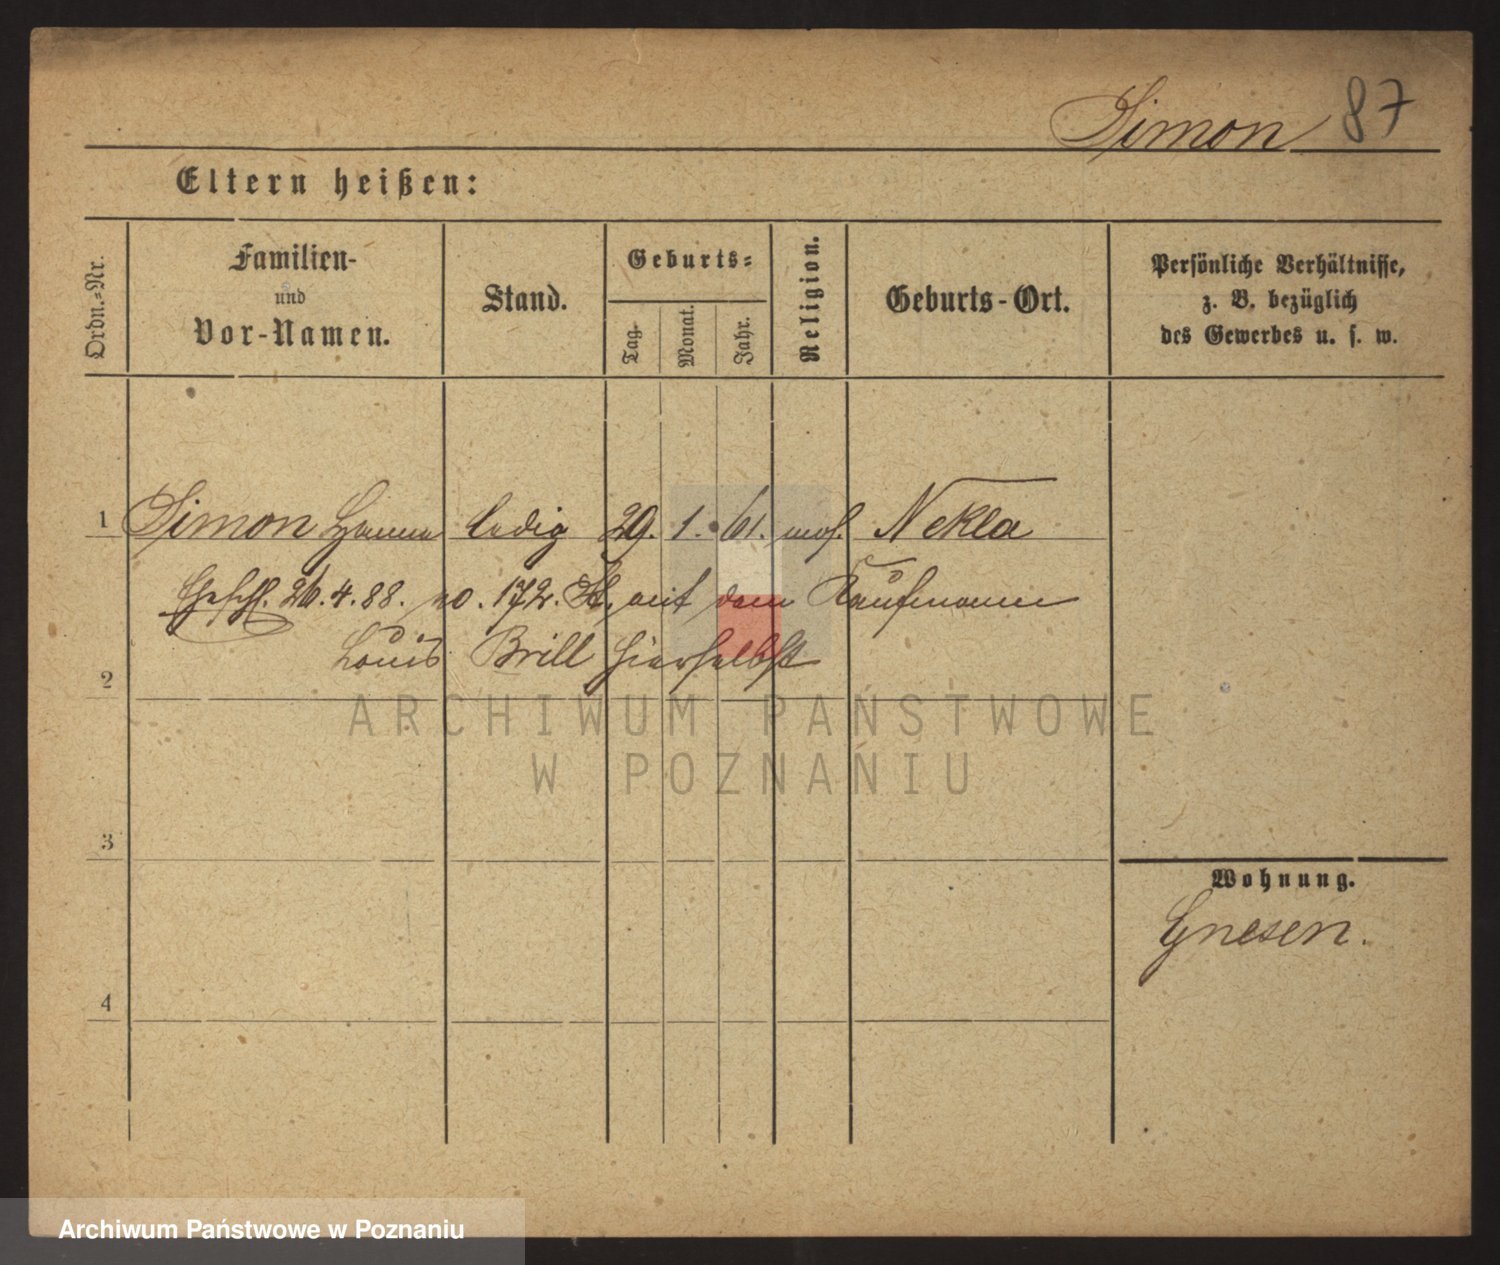 Simon 87
Eltern heißen:
Ordn.-Nr.
Familien-
und
Vor-Namen.
Stand.
Geburts-
Tag.
Monat.
Jahr.
Religion.
Geburts-Ort.
Persönliche Verhältnisse,
z. B. bezüglich
des Gewerbes u. s. w.
1 Simon Hanna ledig 29. 1. 61. mos. Nekla
26.4.88. no. 172. mit dem Kaufmann
Louis Brill hierselbst
2
ARCHIWUM PAŃSTWOWE
W POZNANIU
3
Wohnung.
Gnesen.
4
Archiwum Państwowe w Poznaniu